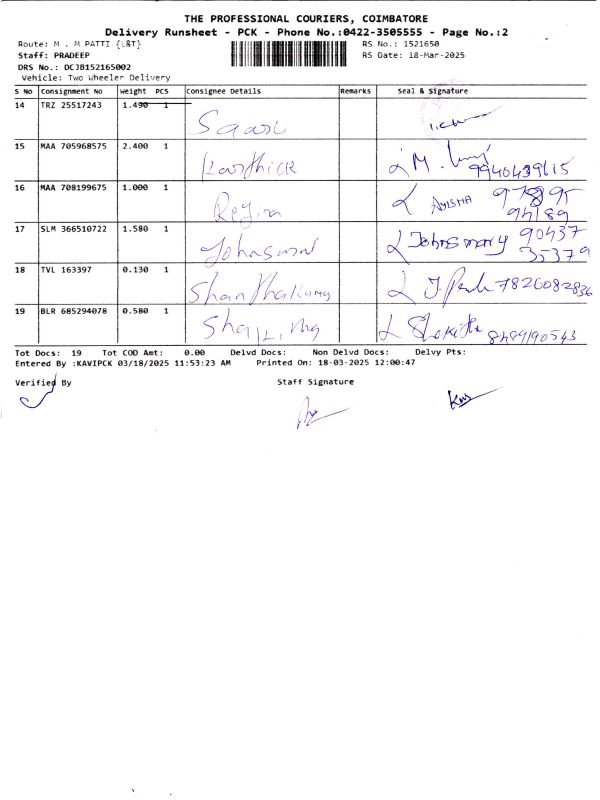 THE PROFESSIONAL COURIERS, COIMBATORE
Delivery Runsheet - PCK - Phone No.:0422-3505555 - Page No.:2
Route: M . M PATTI {L&T} RS No.: 1521650
Staff: PRADEEP RS Date: 18-Mar-2025
DRS No.: DCJB152165002
Vehicle: Two Wheeler Delivery
S No Consignment No Weight PCS Consignee Details Remarks Seal & Signature
14 TRZ 25517243 1.490 1
15 MAA 705968575 2.400 1 Karthick M. 9940439615
16 MAA 708199675 1.000 1 Regina AYISHA
17 SLM 366510722 1.580 1 Johnsmary 90437
35379
18 TVL 163397 0.130 1 Shanthakumg 7826082836
19 BLR 685294078 0.580 1 8489190543
Tot Docs: 19 Tot COD Amt: 0.00 Delvd Docs: Non Delvd Docs: Delvy Pts:
Entered By :KAVIPCK 03/18/2025 11:53:23 AM Printed On: 18-03-2025 12:00:47
Verified By Staff Signature